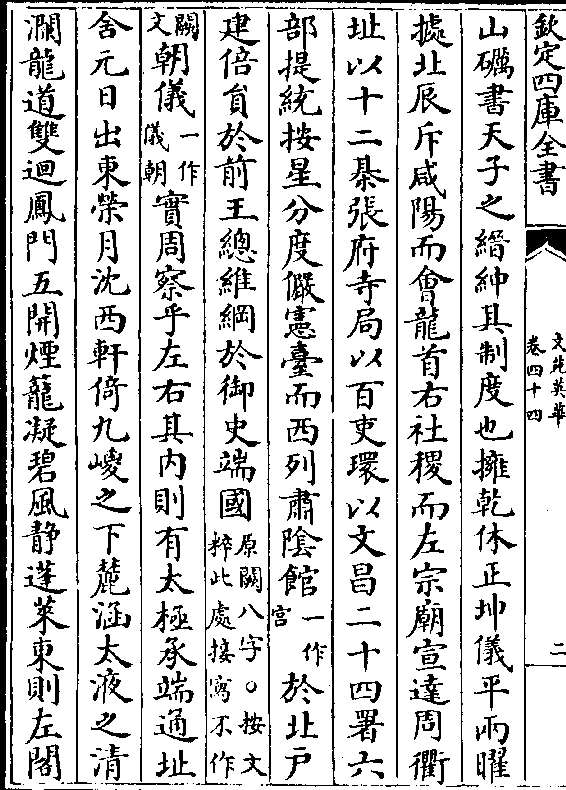 欽定四庫全書
文苑英華
卷四十四
二
山礪書天子之縉紳其制度也擁乾休正坤儀平兩曜
據北辰斥咸陽而會龍首右社稷而左宗廟宣達周衢
址以十二棊張府寺局以百吏環以文昌二十四署六
部提統按星分度儼憲臺而西列肅陰館一作宫於北戸
建倍貟於前王總維綱於御史端國原闕八字○按文粹此處接寫不作
闕文朝儀一作儀朝實周察乎左右其内則有太極承端通址
含元日出東榮月沈西軒倚九嵕之下麓涵太液之清
瀾龍道雙迴鳳門五開煙籠凝碧風静蓬萊東則左閣